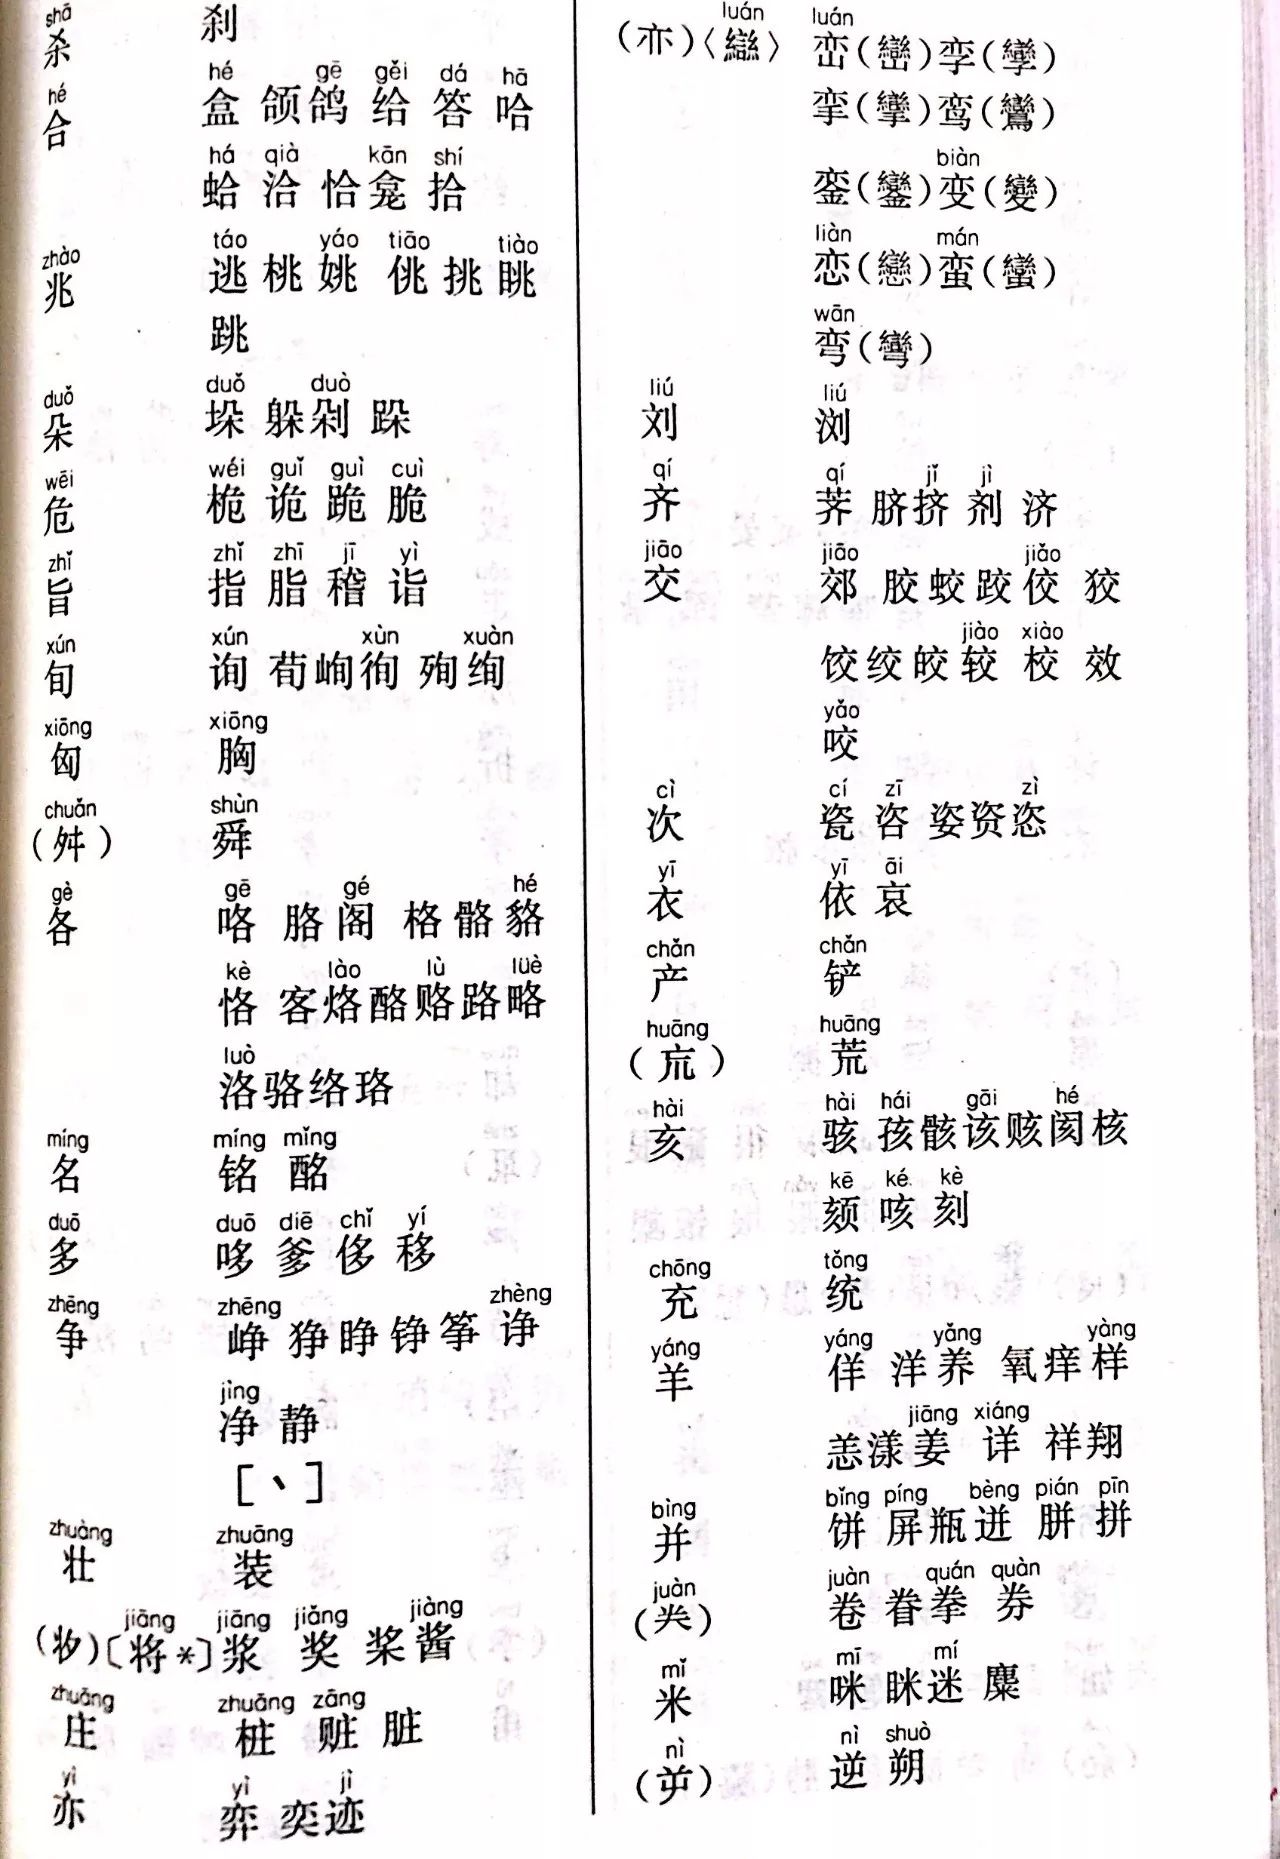 shā
杀 刹
hé hé gē gěi dá hā
合 盒 颌 鸽 给 答 哈
há qià kān shí
蛤 洽 恰 龛 拾
zhào táo yáo tiāo tiào
兆 逃 桃 姚 佻 挑 眺
跳
duǒ duǒ duò
朵 垛 躲 剁 跺
wēi wéi guǐ guì cuì
危 桅 诡 跪 脆
zhǐ zhǐ zhī jī yì
旨 指 脂 稽 诣
xún xún xùn xuàn
旬 询 荀 峋 徇 殉 绚
xiōng xiōng
匈 胸
chuǎn shùn
(舛) 舜
gè gē gé hé
各 咯 胳 阁 格 骼 貉
kè lào lù lüè
恪 客 烙 酪 赂 路 略
luò
洛 骆 络 珞
míng míng mǐng
名 铭 酩
duō duō diē chǐ yí
多 哆 爹 侈 移
zhēng zhēng zhèng
争 峥 狰 睁 铮 筝 诤
jìng
净 静
[丶]
zhuàng zhuāng
壮 装
jiāng jiāng jiǎng jiàng
〔将*〕浆 奖 桨 酱
zhuāng zhuāng zāng
庄 桩 赃 脏
yì yì jì
亦 弈 奕 迹
luán luán
(亦)〈䜌〉 峦(巒)孪(孿)
挛(攣)鸾(鸞)
biàn
銮(鑾)变(變)
liàn mán
恋(戀)蛮(蠻)
wān
弯(彎)
liú liú
刘 浏
qí qí jǐ jì
齐 荠 脐 挤 剂 济
jiāo jiāo jiǎo
交 郊 胶 蛟 跤 佼 狡
jiào xiào
饺 绞 皎 较 校 效
yǎo
咬
cì cí zī zì
次 瓷 咨 姿 资 恣
yī yī āi
衣 依 哀
chǎn chǎn
产 铲
huāng huāng
(巟) 荒
hài hài hái gāi hé
亥 骇 孩 骸 该 赅 阂 核
kē ké kè
颏 咳 刻
chōng tǒng
充 统
yáng yáng yǎng yàng
羊 佯 洋 养 氧 痒 样
jiāng xiáng
恙 漾 姜 详 祥 翔
bìng bǐng píng bèng pián pīn
并 饼 屏 瓶 迸 胼 拼
juàn juàn quán quàn
(龹) 卷 眷 拳 券
mǐ mī mí
米 咪 眯 迷 麋
nì nì shuò
(屰) 逆 朔